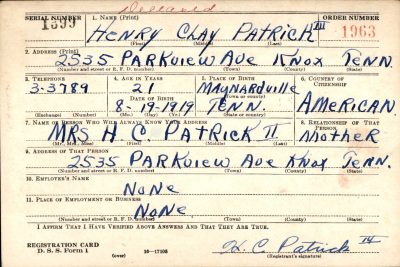 Deceased
SERIAL NUMBER 1. NAME (Print) ORDER NUMBER
1399 HENRY CLAY PATRICK III 1963
(First) (Middle) (Last)
2. ADDRESS (Print)
2535 PARKVIEW AVE KNOX TENN.
(Number and street or R. F. D. number) (Town) (County) (State)
3. TELEPHONE 4. AGE IN YEARS 5. PLACE OF BIRTH 6. COUNTRY OF CITIZENSHIP
3-3789 21 MAYNARDVILLE
DATE OF BIRTH (Town or county)
8-19-1919 TENN. AMERICAN
(Exchange) (Number) (Mo.) (Day) (Yr.) (State or country)
7. NAME OF PERSON WHO WILL ALWAYS KNOW YOUR ADDRESS 8. RELATIONSHIP OF THAT PERSON
MRS H. C. PATRICK II MOTHER
(Mr., Mrs., Miss) (First) (Middle) (Last)
9. ADDRESS OF THAT PERSON
2535 PARKVIEW AVE KNOX TENN.
(Number and street or R. F. D. number) (Town) (County) (State)
10. EMPLOYER'S NAME
NONE
11. PLACE OF EMPLOYMENT OR BUSINESS
NONE
(Number and street or R. F. D. number) (Town) (County) (State)
I AFFIRM THAT I HAVE VERIFIED ABOVE ANSWERS AND THAT THEY ARE TRUE.
REGISTRATION CARD
D. S. S. Form 1 (over) 16—17105 H. C. Patrick
(Registrant's signature)